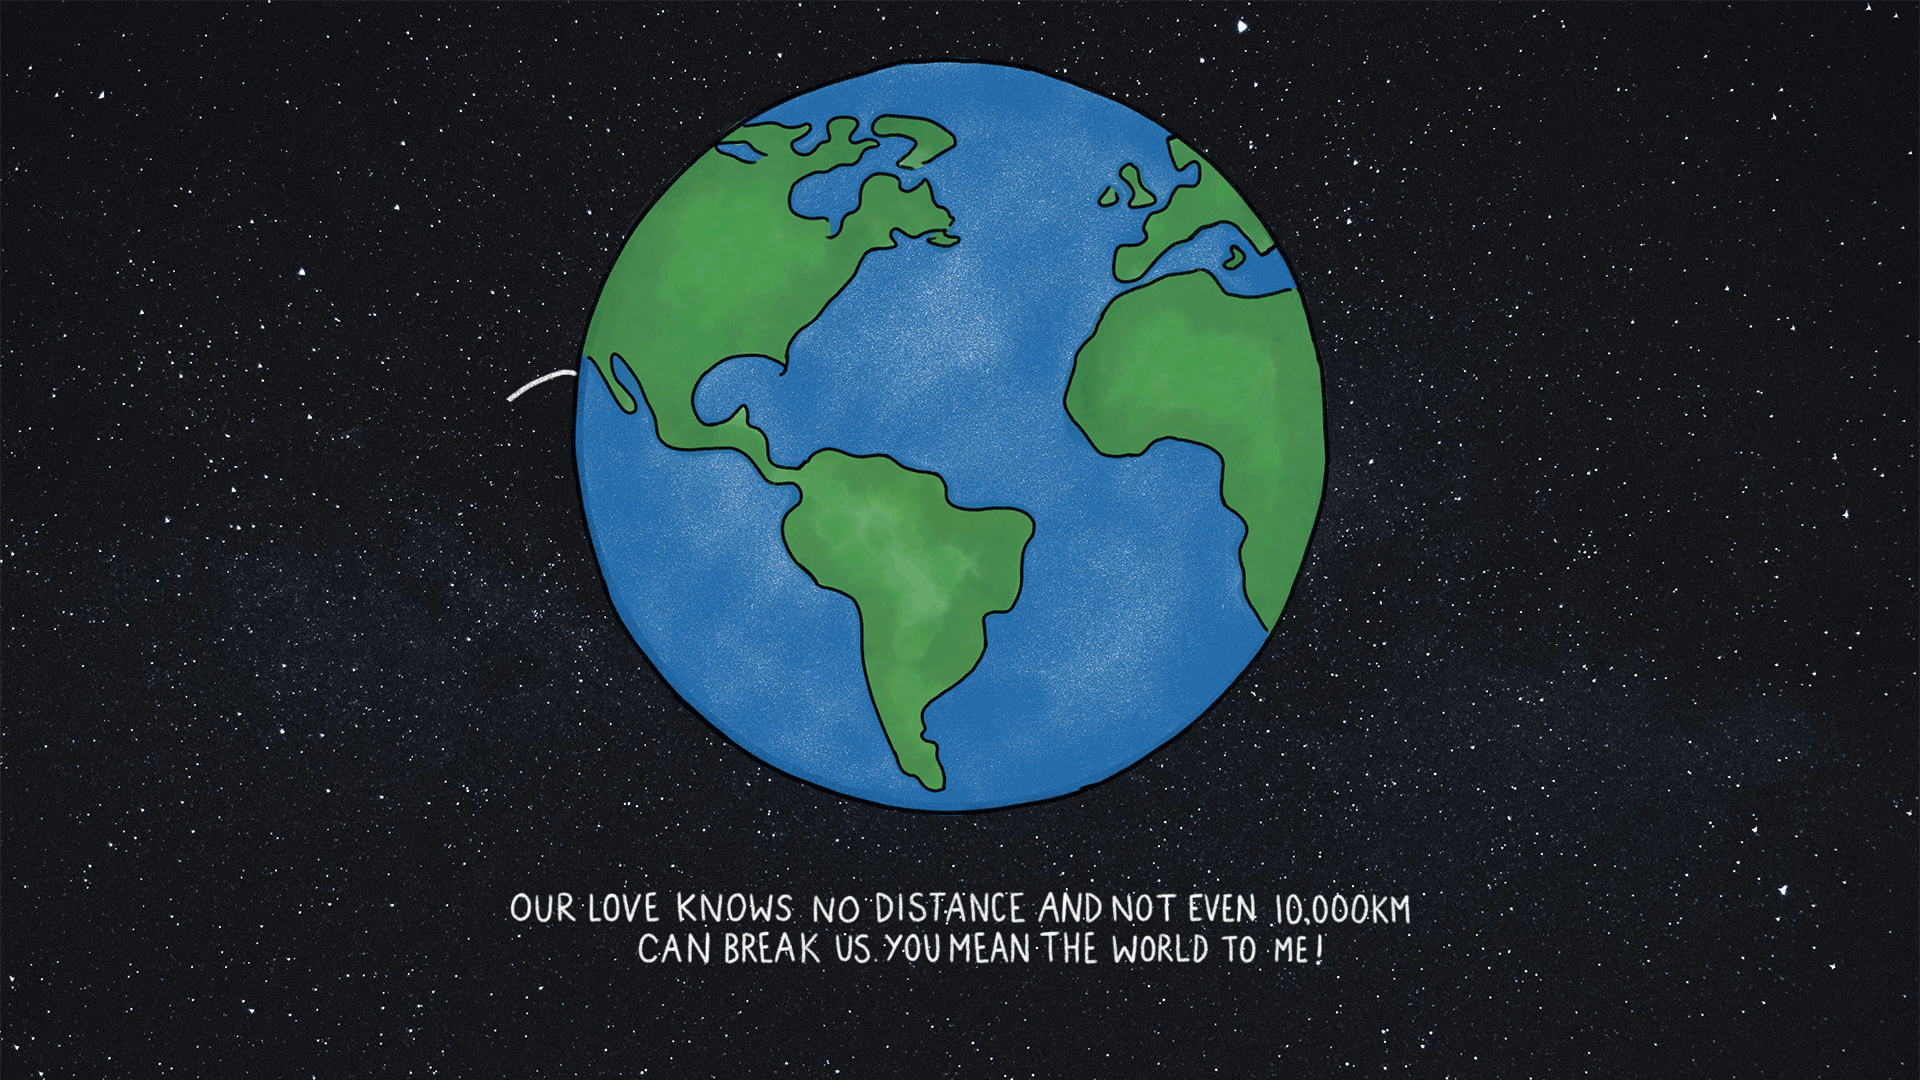 OUR LOVE KNOWS NO DISTANCE AND NOT EVEN 10,000KM
CAN BREAK US. YOU MEAN THE WORLD TO ME!